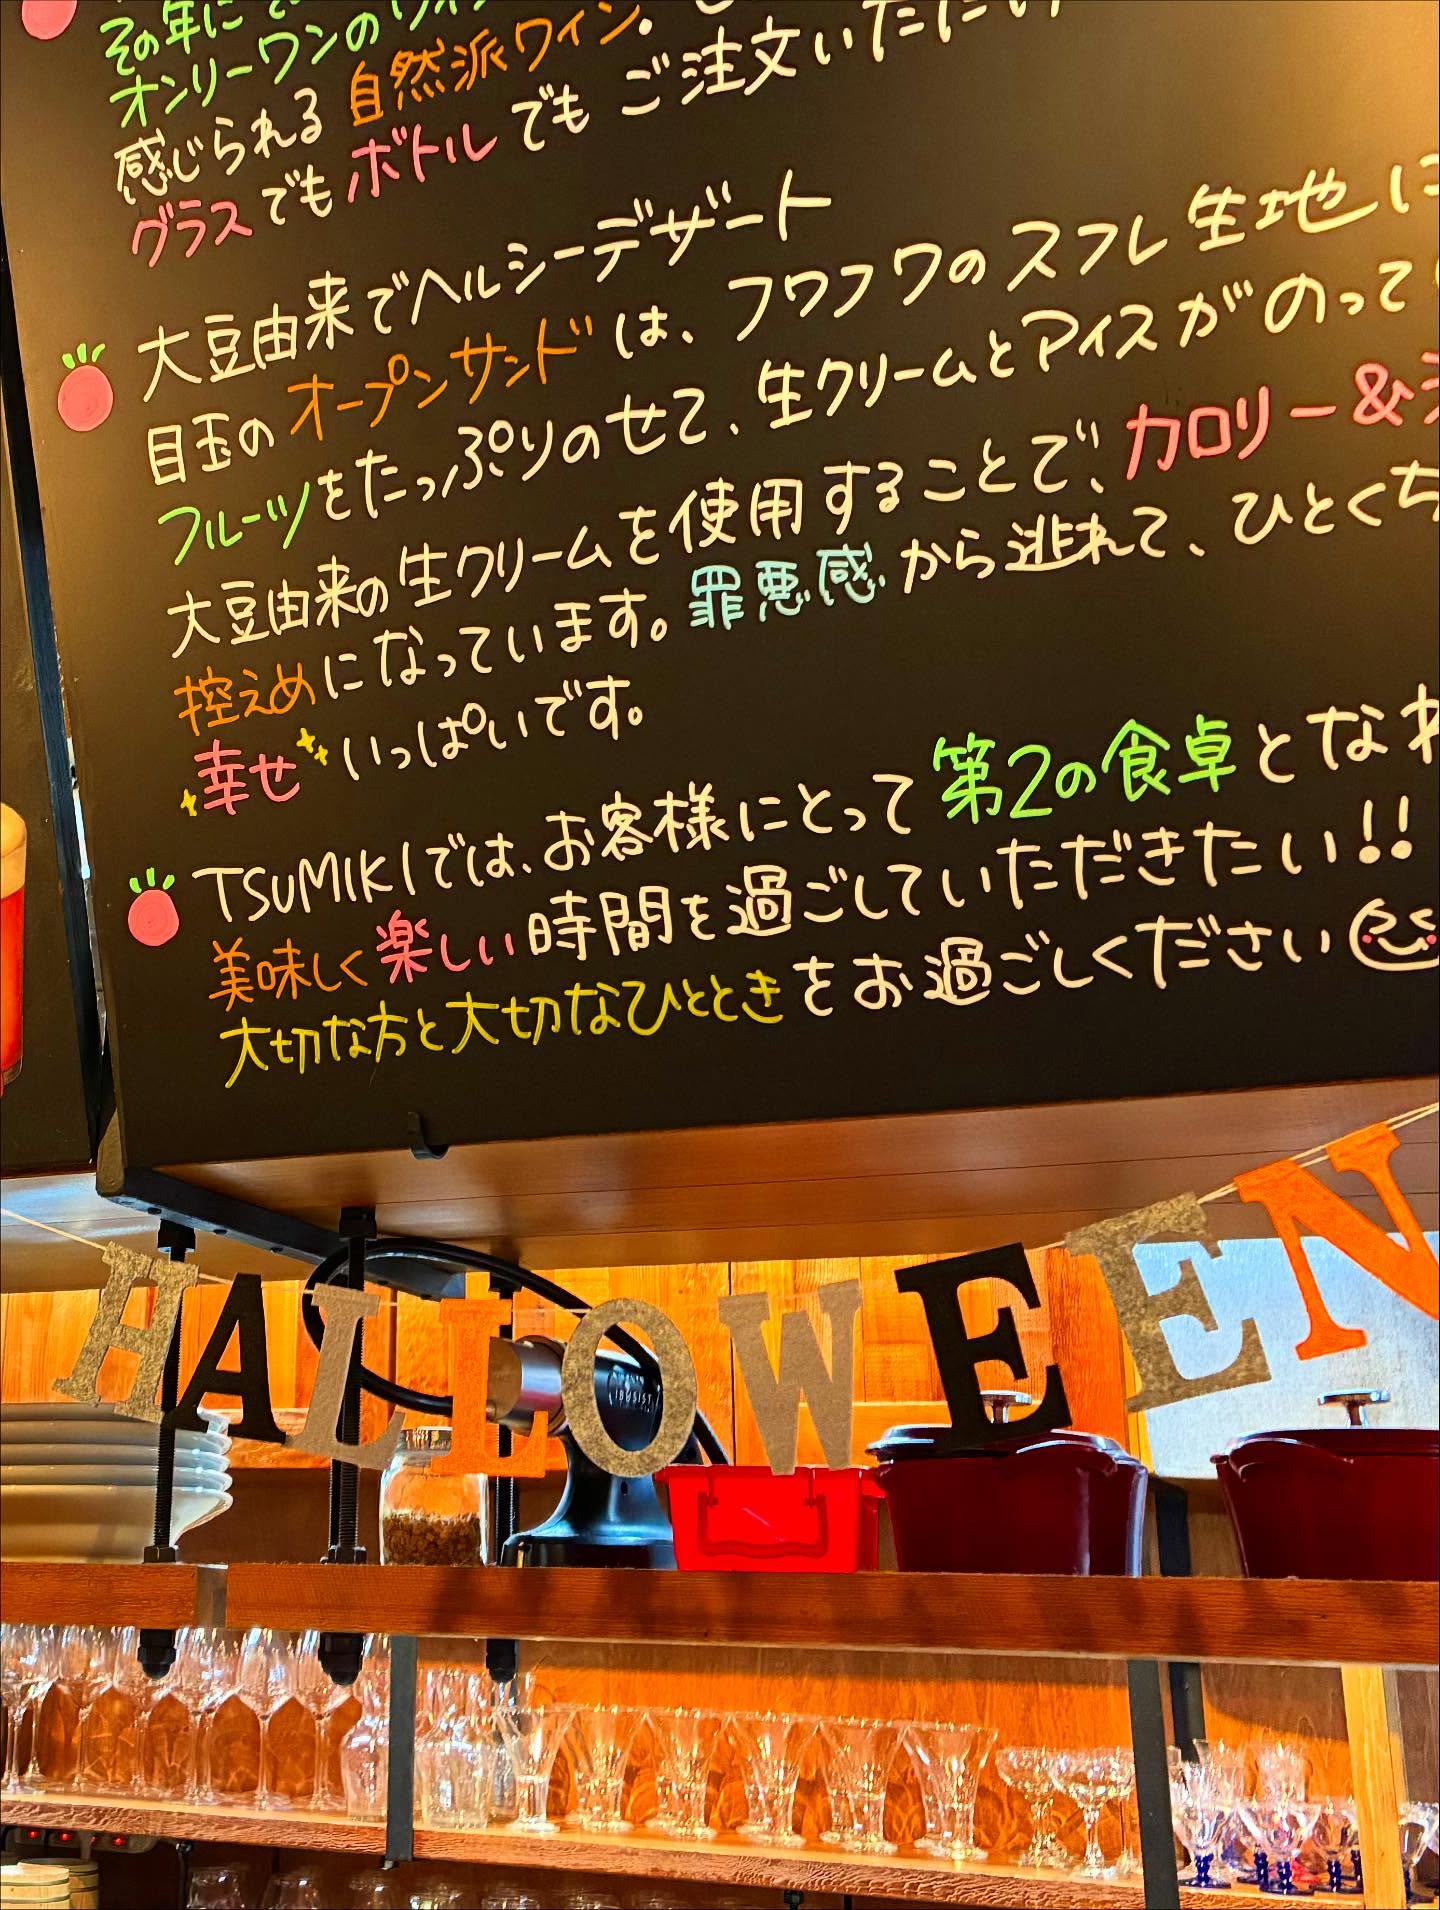 その年に
オンリーワンの
感じられる 自然派ワイン。
グラスでも ボトルでも ご注文いただけ
大豆由来でヘルシーデザート
目玉の オープンサンド は、フワフワのスフレ生地に
フルーツをたっぷりのせて、生クリームとアイスがのって
大豆由来の生クリームを使用することで、カロリー&
控えめになっています。罪悪感から逃れて、ひとくち
幸せいっぱいです。
TSUMIKIでは、お客様にとって第2の食卓となれ
美味しく楽しい時間を過ごしていただきたい!!
大切な方と大切なひとときをお過ごしください
HALLOWEEN